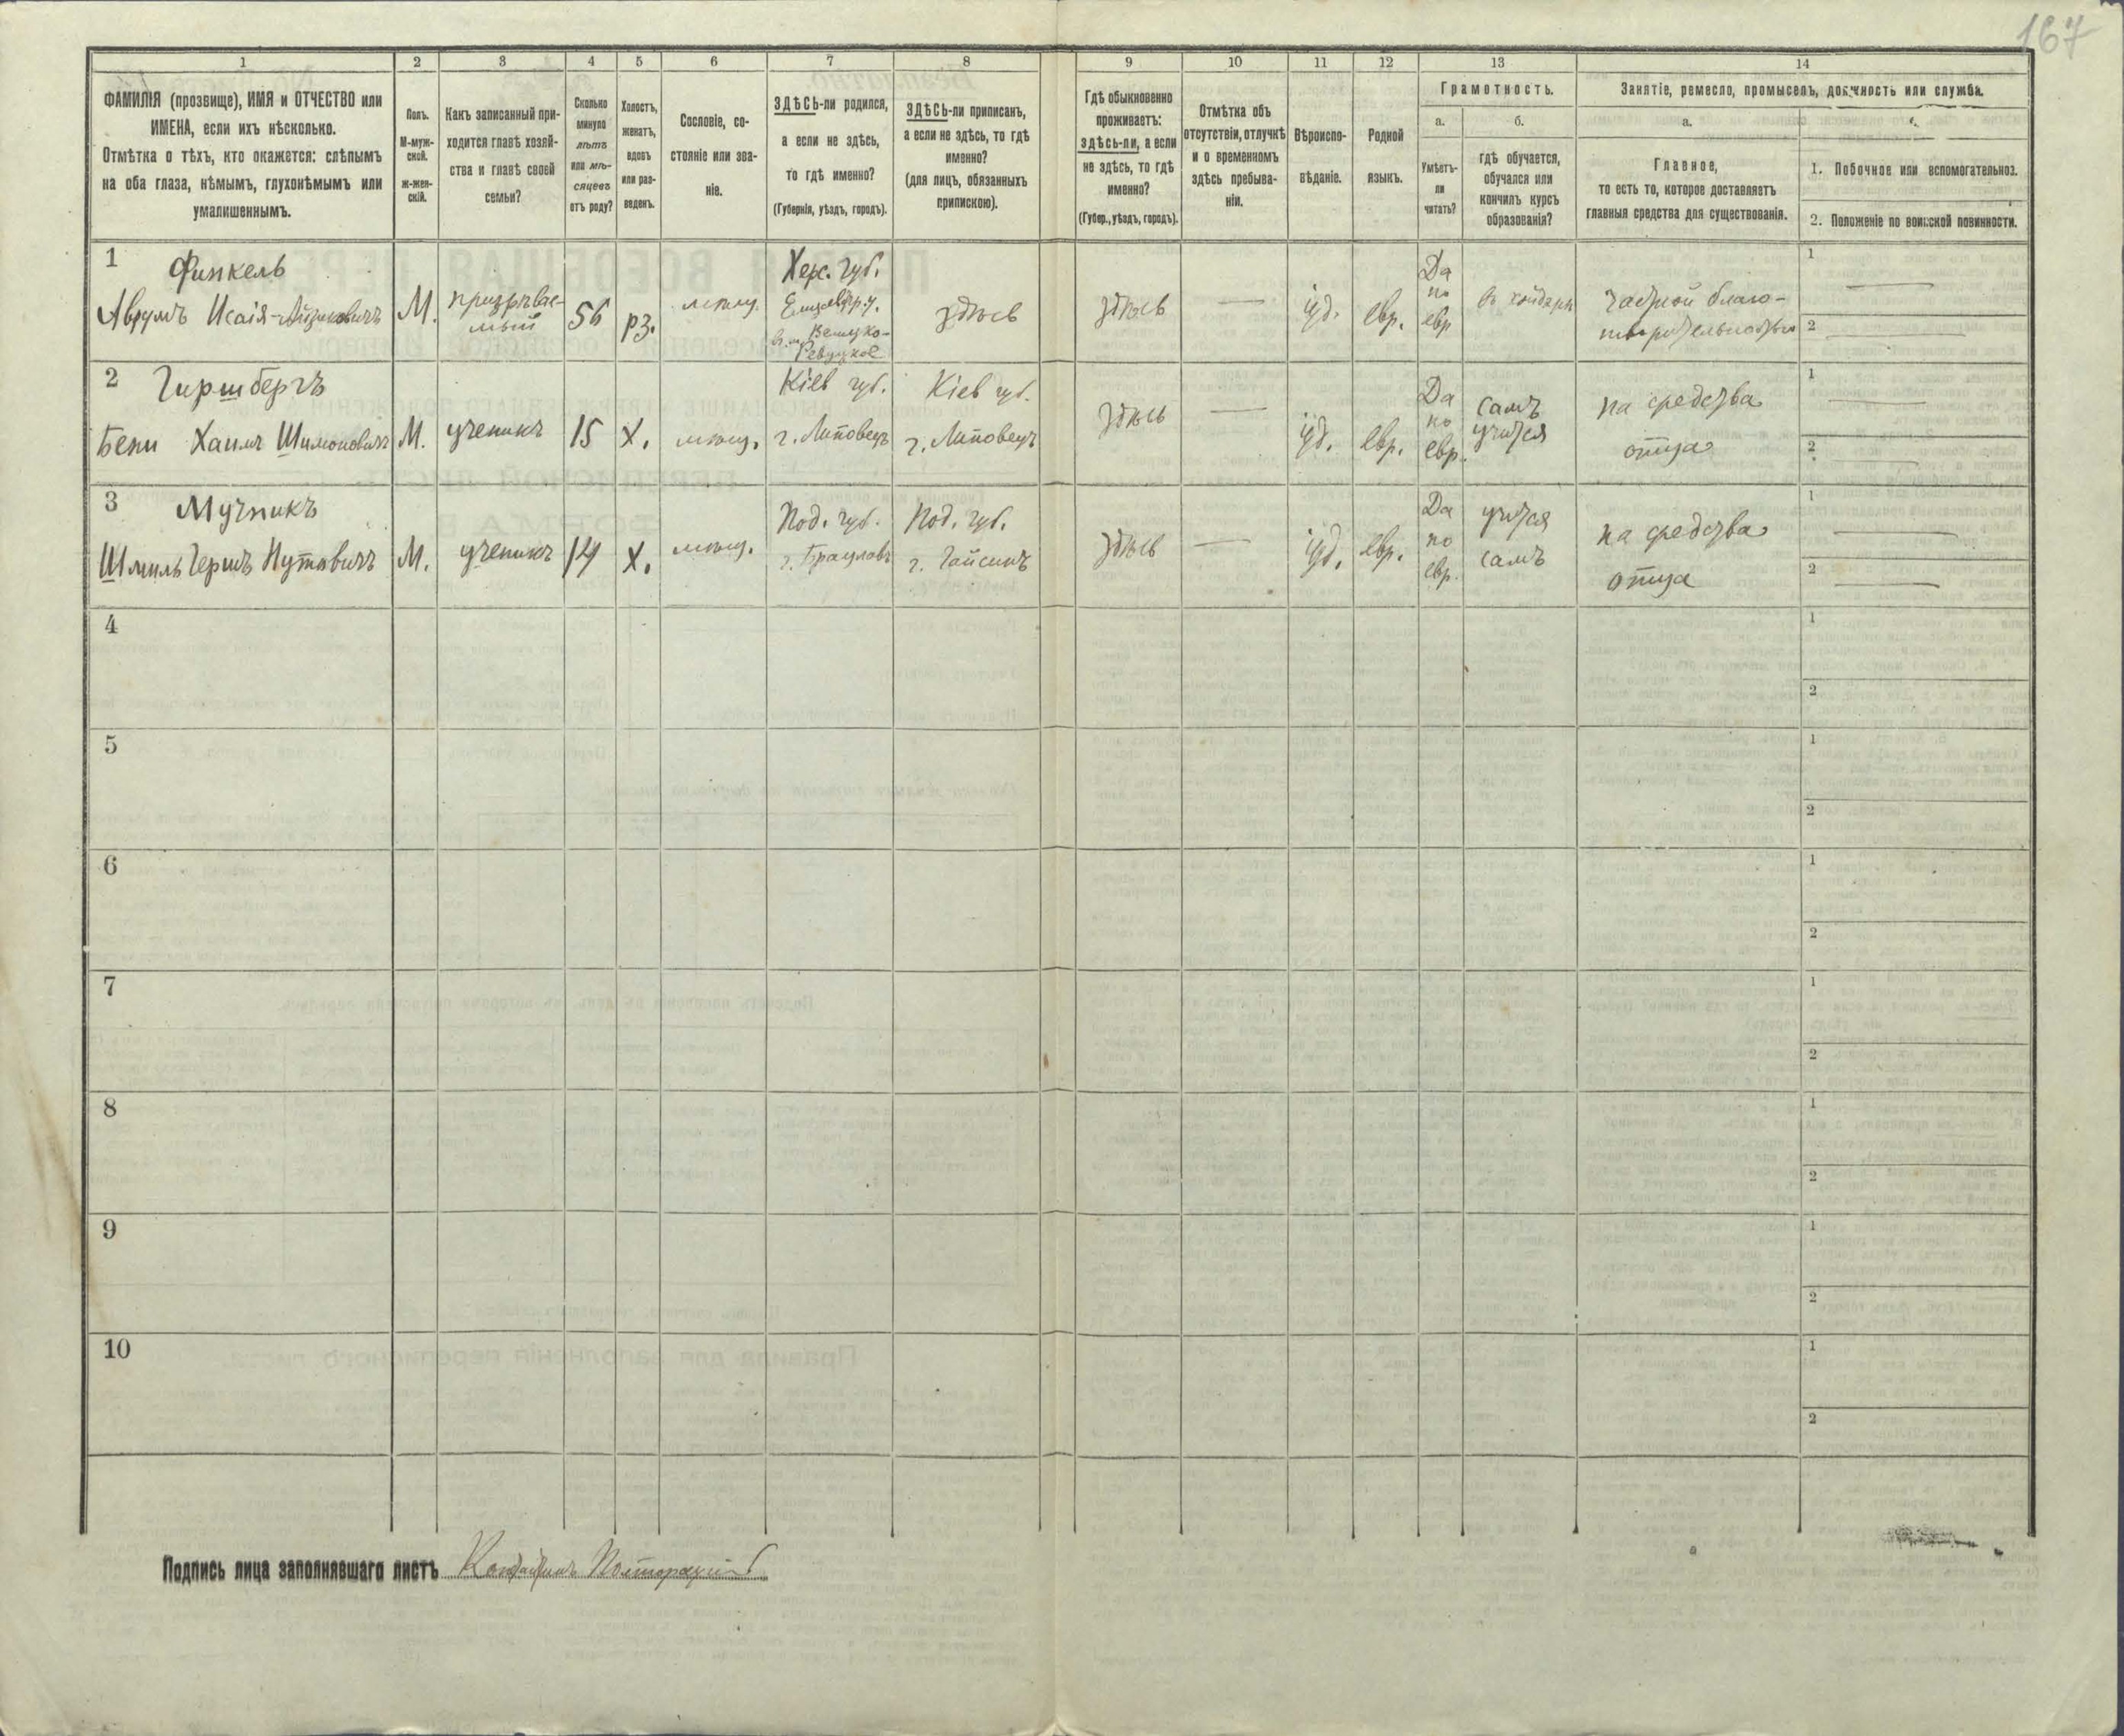 167
1 2 3 4 5 6 7 8 9 10 11 12 13 14
ФАМИЛІЯ (прозвище), ИМЯ и ОТЧЕСТВО или
ИМЕНА, если ихъ нѣсколько.
Отмѣтка о тѣхъ, кто окажется: слѣпымъ
на оба глаза, нѣмымъ, глухонѣмымъ или
умалишеннымъ.
Полъ.
М-муж-
ской.
ж-жен-
скій.
Какъ записанный при-
ходится главѣ хозяй-
ства и главѣ своей
семьи?
Сколько
минуло
лѣтъ
или мѣ-
сяцевъ
отъ роду?
Холостъ,
женатъ,
вдовъ
или раз-
веденъ.
Сословіе, со-
стояніе или зва-
ніе.
ЗДѢСЬ-ли родился,
а если не здѣсь,
то гдѣ именно?
(Губернія, уѣздъ, городъ).
ЗДѢСЬ-ли приписанъ,
а если не здѣсь, то гдѣ
именно?
(для лицъ, обязанныхъ
припискою).
Гдѣ обыкновенно
проживаетъ:
здѣсь-ли, а если
не здѣсь, то гдѣ
именно?
(Губер., уѣздъ, городъ).
Отмѣтка объ
отсутствіи, отлучкѣ
и о временномъ
здѣсь пребыва-
ніи.
Вѣроиспо-
вѣданіе.
Родной
языкъ.
Грамотность.
а.
Умѣетъ-
ли
читать?
б.
гдѣ обучается,
обучался или
кончилъ курсъ
образованія?
Занятіе, ремесло, промыселъ, должность или служба.
а.
Главное,
то есть то, которое доставляетъ
главныя средства для существованія.
1. Побочное или вспомогательное.
2. Положеніе по воинской повинности.
1
Финкель
Аврумъ Исаія-Айзиковичъ
М.
призрѣвае-
мый
56
рз.
мѣщ.
Херс. губ.
Елисавгр. у.
Велуко-
здѣсь
здѣсь
—
іуд.
евр.
Да
по
евр
въ хейдерѣ
частной благо-
творительностью
1 —
2 —
2
Гиршбергъ
Бени Хаимъ Шимоновичъ
М.
ученикъ
15
х.
мѣщ.
Кіев губ.
г. Липовецъ
Кіев губ.
г. Липовецъ
здѣсь
—
іуд.
евр.
Да
по
евр.
самъ
учится
на средства
отца
1 —
2 —
3
Мучникъ
Шмиль Гершъ Нутовичъ
М.
ученикъ
14
х.
мѣщ.
Под. губ.
г. Браиловъ
Под. губ.
г. Гайсинъ
здѣсь
—
іуд.
евр.
Да
по
евр.
учится
самъ
на средства
отца
1 —
2 —
4
1
2
5
1
2
6
1
2
7
1
2
8
1
2
9
1
2
10
1
2
Подпись лица заполнявшаго листъ